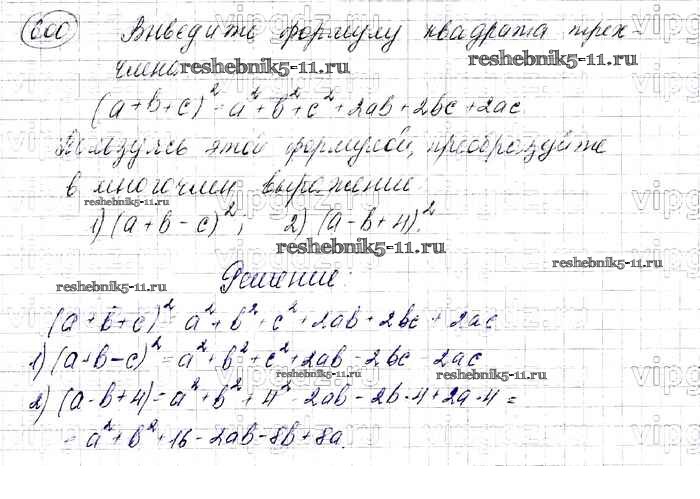 600 Выведите формулу квадрата трех-
члена
reshebnik5-11.ru reshebnik5-11.ru
(a+b+c)² = a²+b²+c²+2ab+2bc+2ac
Пользуясь этой формулой, преобразуйте
в многочлен выражение
reshebnik5-11.ru
1) (a+b-c)²; 2) (a-b+4)².
reshebnik5-11.ru
reshebnik5-11.ru
Решение:
reshebnik5-11.ru
(a+b+c)² = a²+b²+c²+2ab+2bc+2ac
1) (a+b-c)² = a²+b²+c²+2ab-2bc-2ac
reshebnik5-11.ru reshebnik5-11.ru
2) (a-b+4) = a²+b²+4²-2ab-2b·4+2a·4=
= a²+b²+16-2ab-8b+8a.